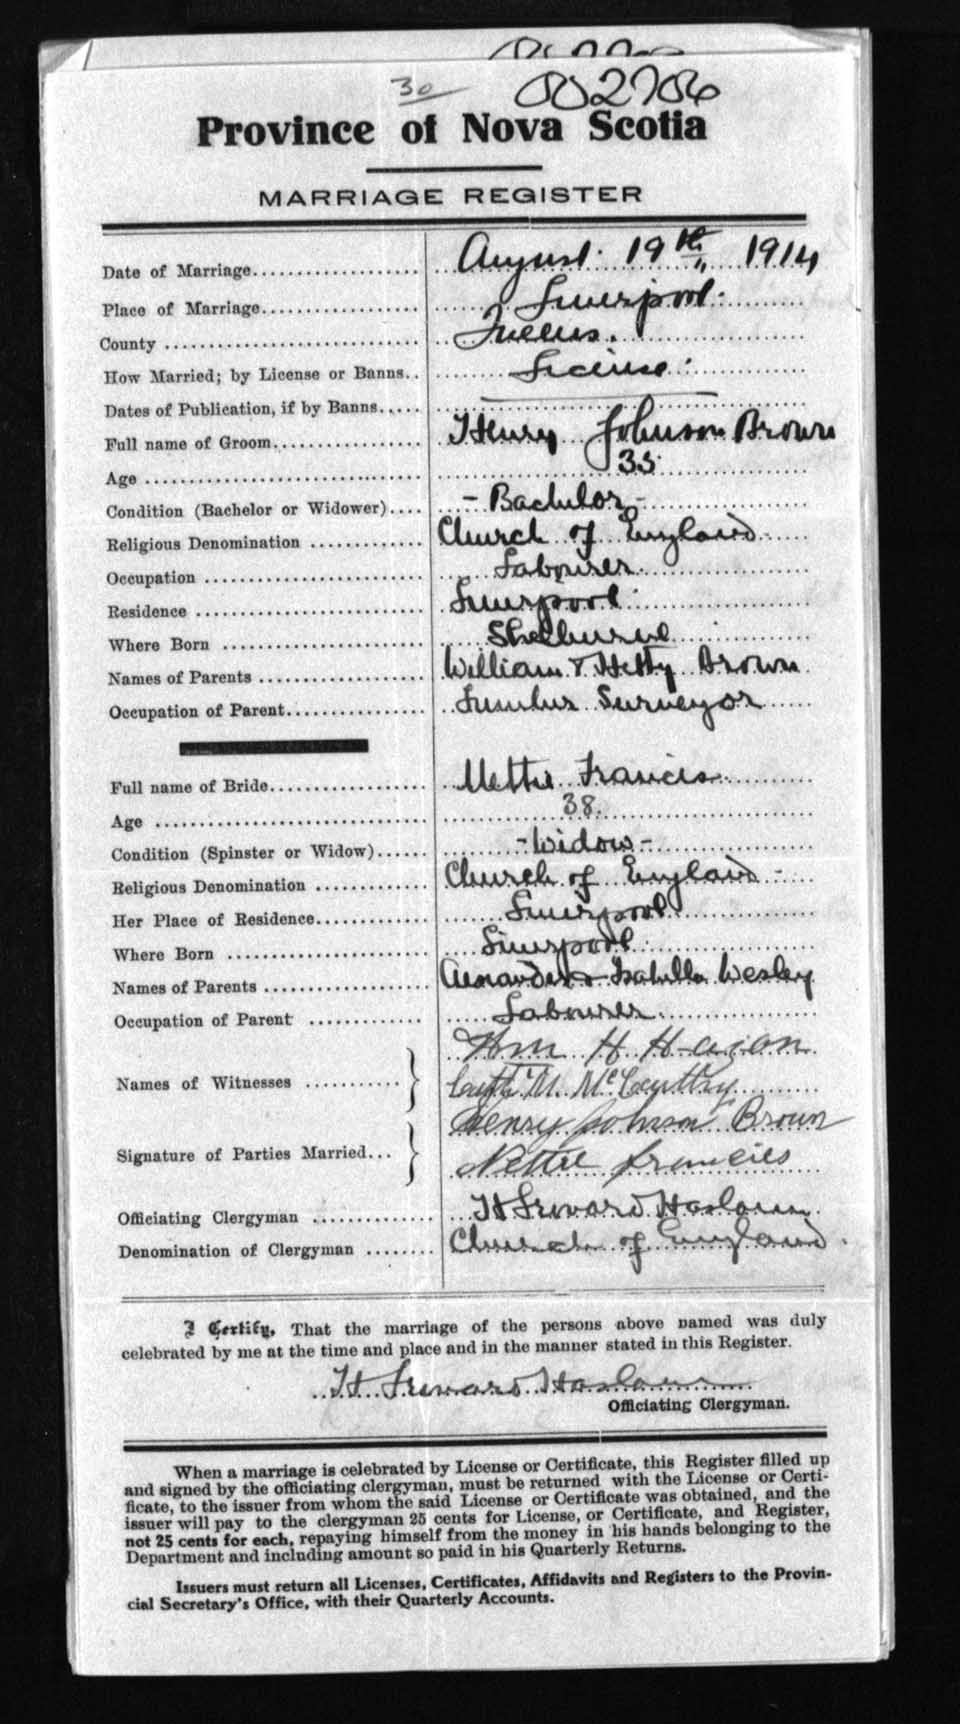 30 002706
Province of Nova Scotia
MARRIAGE REGISTER
Date of Marriage August 19th 1914
Place of Marriage Liverpool
County Queens.
How Married; by License or Banns License
Dates of Publication, if by Banns
Full name of Groom Henry Johnson Brown
Age 35
Condition (Bachelor or Widower) - Bachelor -
Religious Denomination Church of England
Occupation Labourer
Residence Liverpool
Where Born Shelburne
Names of Parents William & Hetty Brown
Occupation of Parent Lumber Surveyor
Full name of Bride Nettie Francis
Age 38
Condition (Spinster or Widow) - Widow -
Religious Denomination Church of England -
Her Place of Residence Liverpool
Where Born Liverpool
Names of Parents Alexander & Isabella Wesley
Occupation of Parent Labourer
Wm H
Names of Witnesses M.
Henry Johnson Brown
Signature of Parties Married Nettie Francies
Officiating Clergyman H Haslam
Denomination of Clergyman Church of England
I Certify, That the marriage of the persons above named was duly
celebrated by me at the time and place and in the manner stated in this Register.
H Haslam
Officiating Clergyman.
When a marriage is celebrated by License or Certificate, this Register filled up
and signed by the officiating clergyman, must be returned with the License or Certi-
ficate, to the issuer from whom the said License or Certificate was obtained, and the
issuer will pay to the clergyman 25 cents for License, or Certificate, and Register,
not 25 cents for each, repaying himself from the money in his hands belonging to the
Department and including amount so paid in his Quarterly Returns.
Issuers must return all Licenses, Certificates, Affidavits and Registers to the Provin-
cial Secretary's Office, with their Quarterly Accounts.